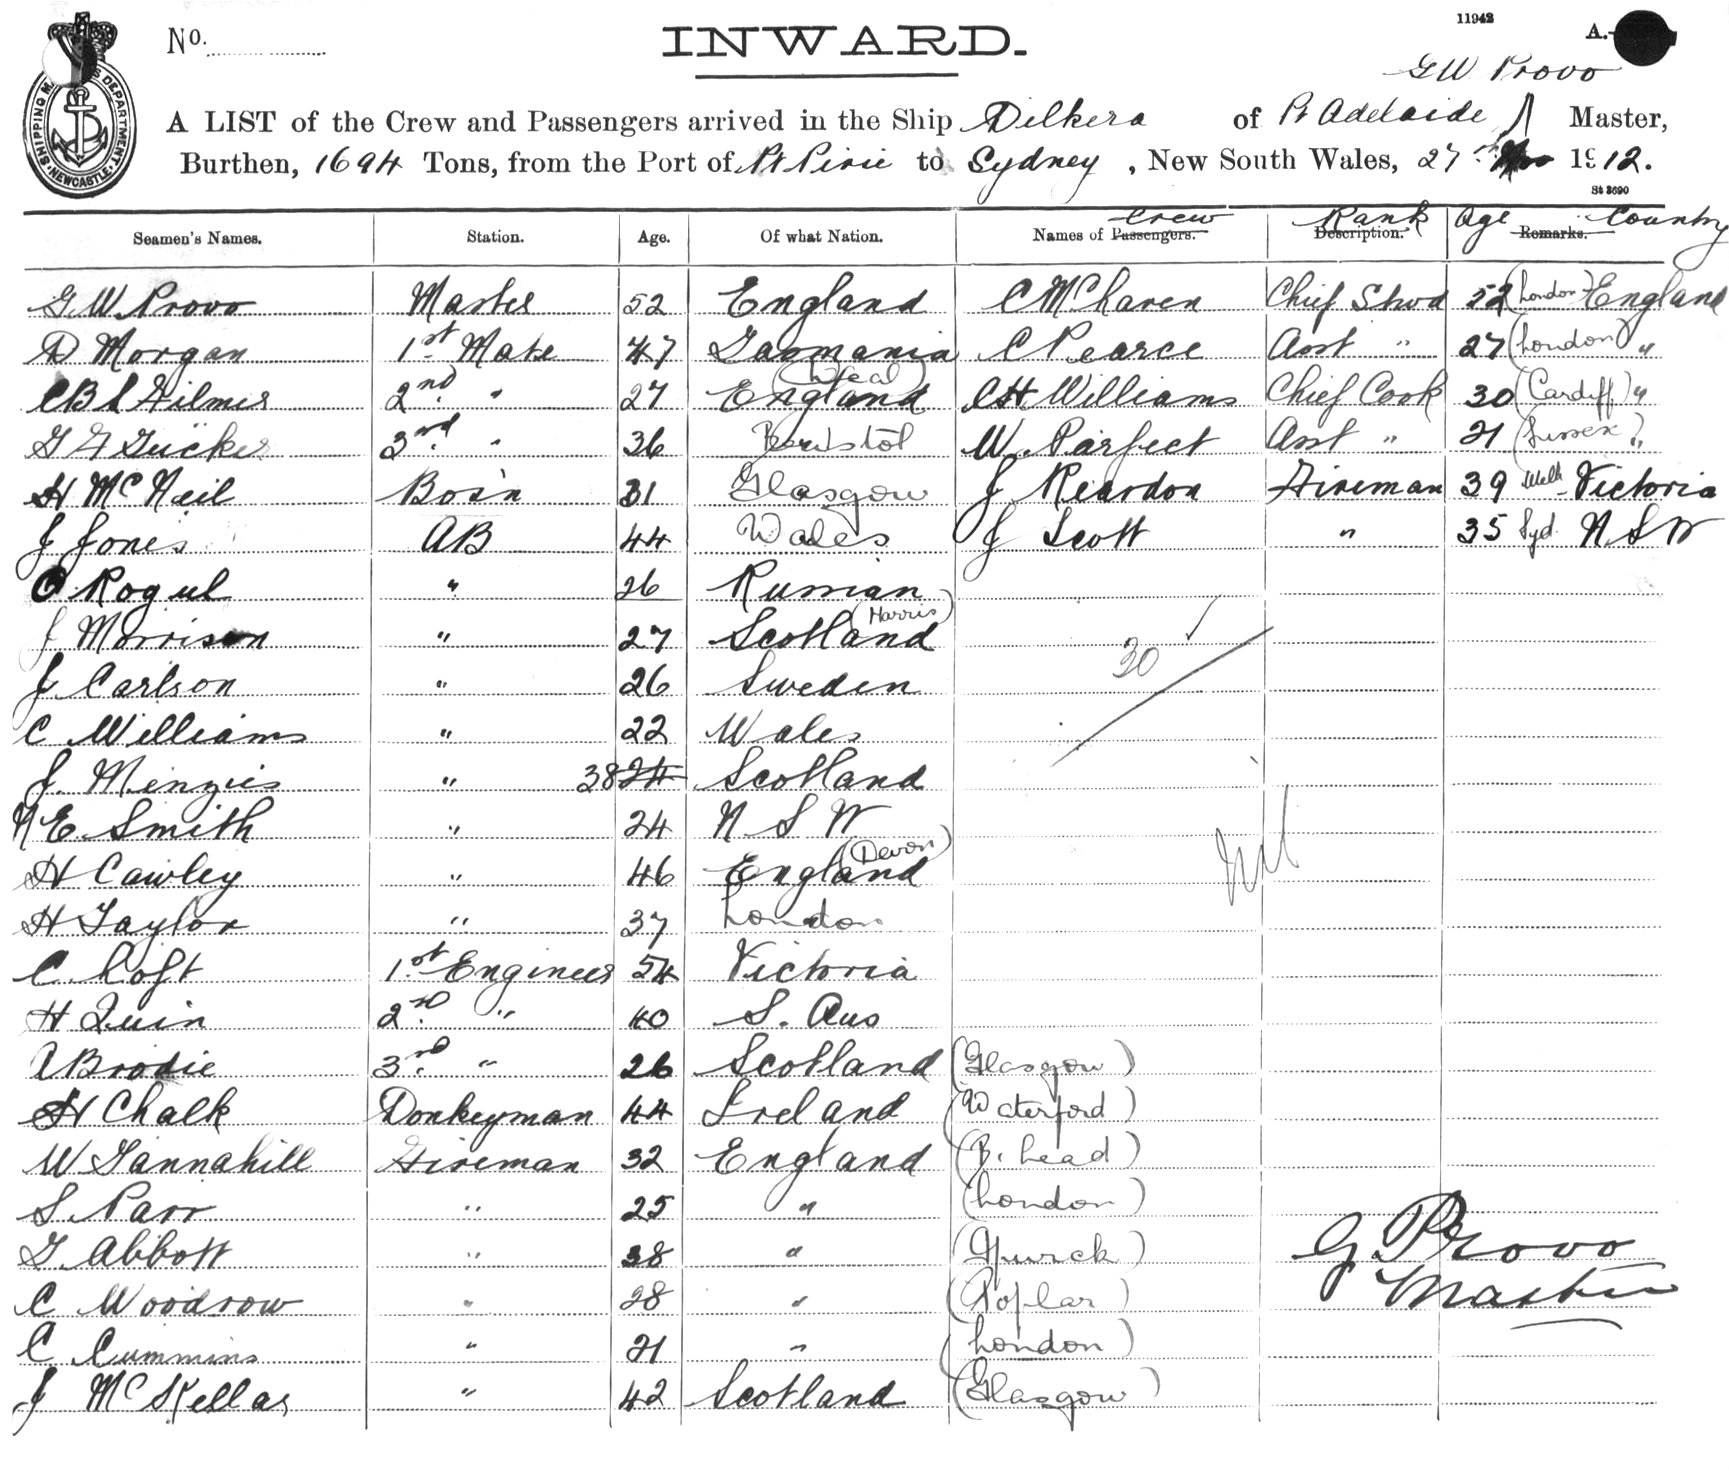 11942
No.
INWARD.
A.
G W Provo
A LIST of the Crew and Passengers arrived in the Ship Dilkera of Pt Adelaide Master,
Burthen, 1694 Tons, from the Port of Pt Pirie to Sydney, New South Wales, 27th 1912.
SHIPPING DEPARTMENT NEWCASTLE
St 3690
Crew Rank Age Country
Seamen's Names. Station. Age. Of what Nation. Names of Passengers. Description. Remarks.
G W Provo Master 52 England C McLaren Chief Stwd 52 (London) England
D Morgan 1st Mate 47 Tasmania C Pearce Asst " 27 (London) "
C B L Filmer 2nd " 27 England C H Williams Chief Cook 30 (Cardiff) "
G F Gücker 3rd " 36 Bristol W Parfect Asst " 21 (Sussex) "
H McNeil Bosn 31 Glasgow J Reardon Fireman 39 Victoria
J Jones AB 44 Wales J Scott " 35 Syd. N S W
C Rogul " 26 Russian
J Morrison " 27 Scotland (Harris)
30
J Carlson " 26 Sweden
C Williams " 22 Wales
J. Minzies " 38 24 Scotland
N E Smith " 24 N S W
H Cawley " 46 England (Devon)
H Taylor " 37 London
C. Loft 1st Engineer 54 Victoria
H Quin 2nd " 40 S. Aus
A Brodie 3rd " 26 Scotland (Glasgow)
H Chalk Donkeyman 44 Ireland (Waterford)
W Tannahill Fireman 32 England (B. head)
S. Parr " 25 " (London)
G. Abbott " 38 "
C Woodrow " 28 " (Poplar)
C Cummins " 21 " (London)
J McKellar " 42 Scotland (Glasgow)
G. Provo
Master